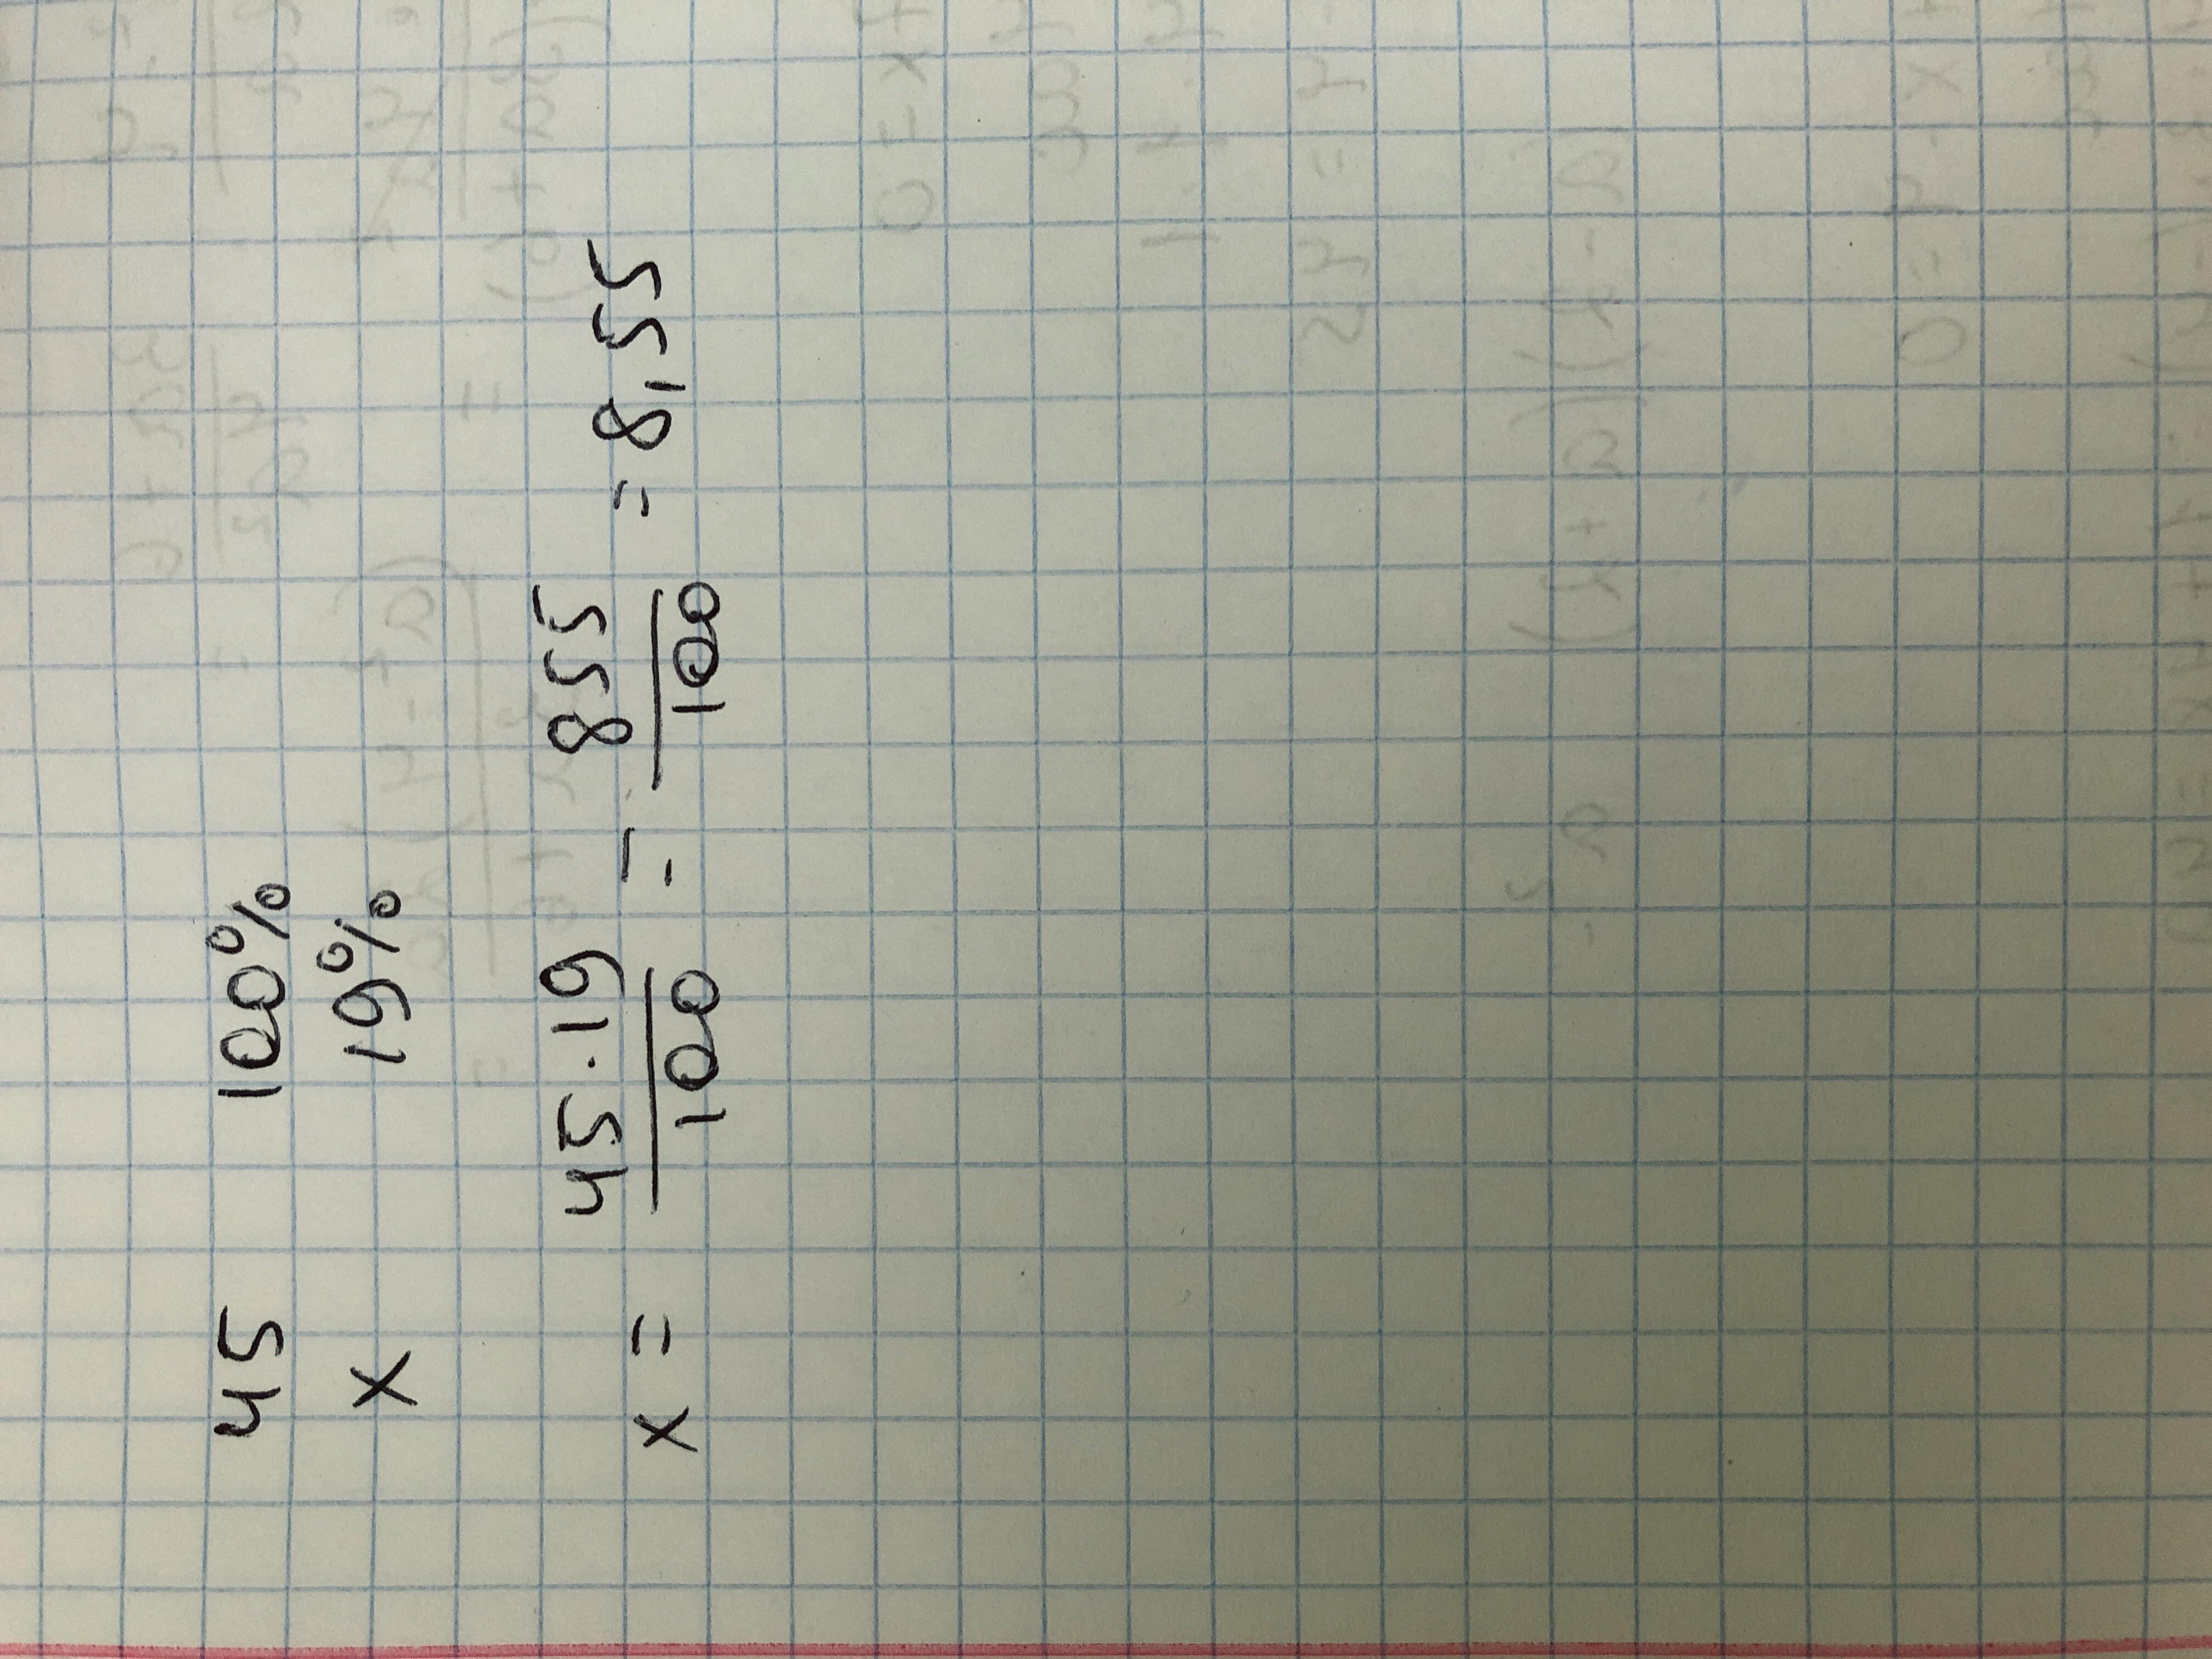 45 100%
x 19%
x = 45·19/100 = 855/100 = 8,55